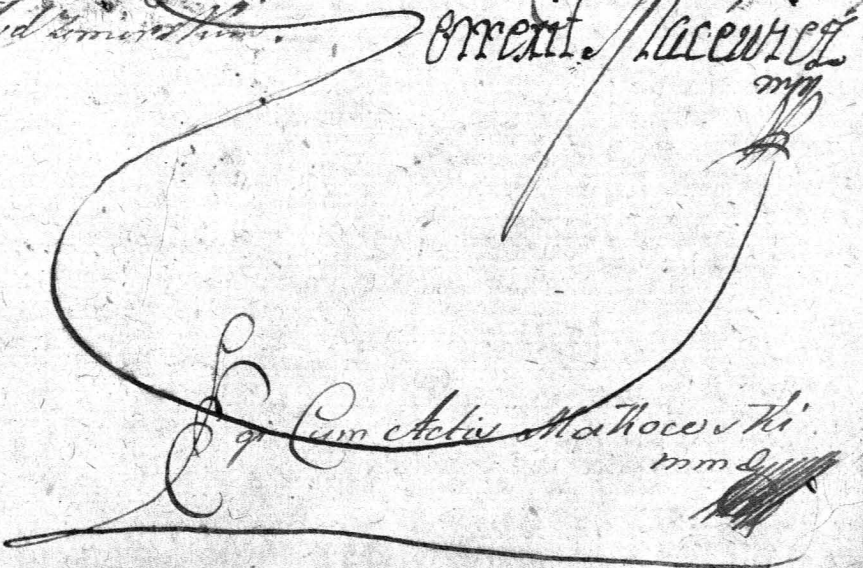 Correxit Macewicz
mp
Lgi Cum Actis Makowski
mmp